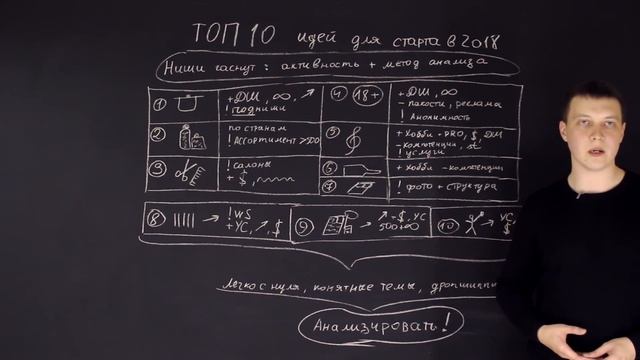 ТОП 10 идей для старта в 2018
Ниши гаснут: активность + метод анализа
1
+ ДШ, ∞, ↗
! годними
2
по странам
! Ассортимент > 500
3
! салоны
+ $,
4 18+
+ ДШ, ∞
- пакости, реклама
! Анонимность
5
+ хобби - PRO, $, ДШ
- компетенции,
! услуги
6
+ хобби - компетенции
7
! фото + структура
8 → ! WS
+ УС, ↗, $
9 → ↗ - $, УС
10 → УС,
$
Легко с нуля, понятные темы, дропшиппи
Анализировать!